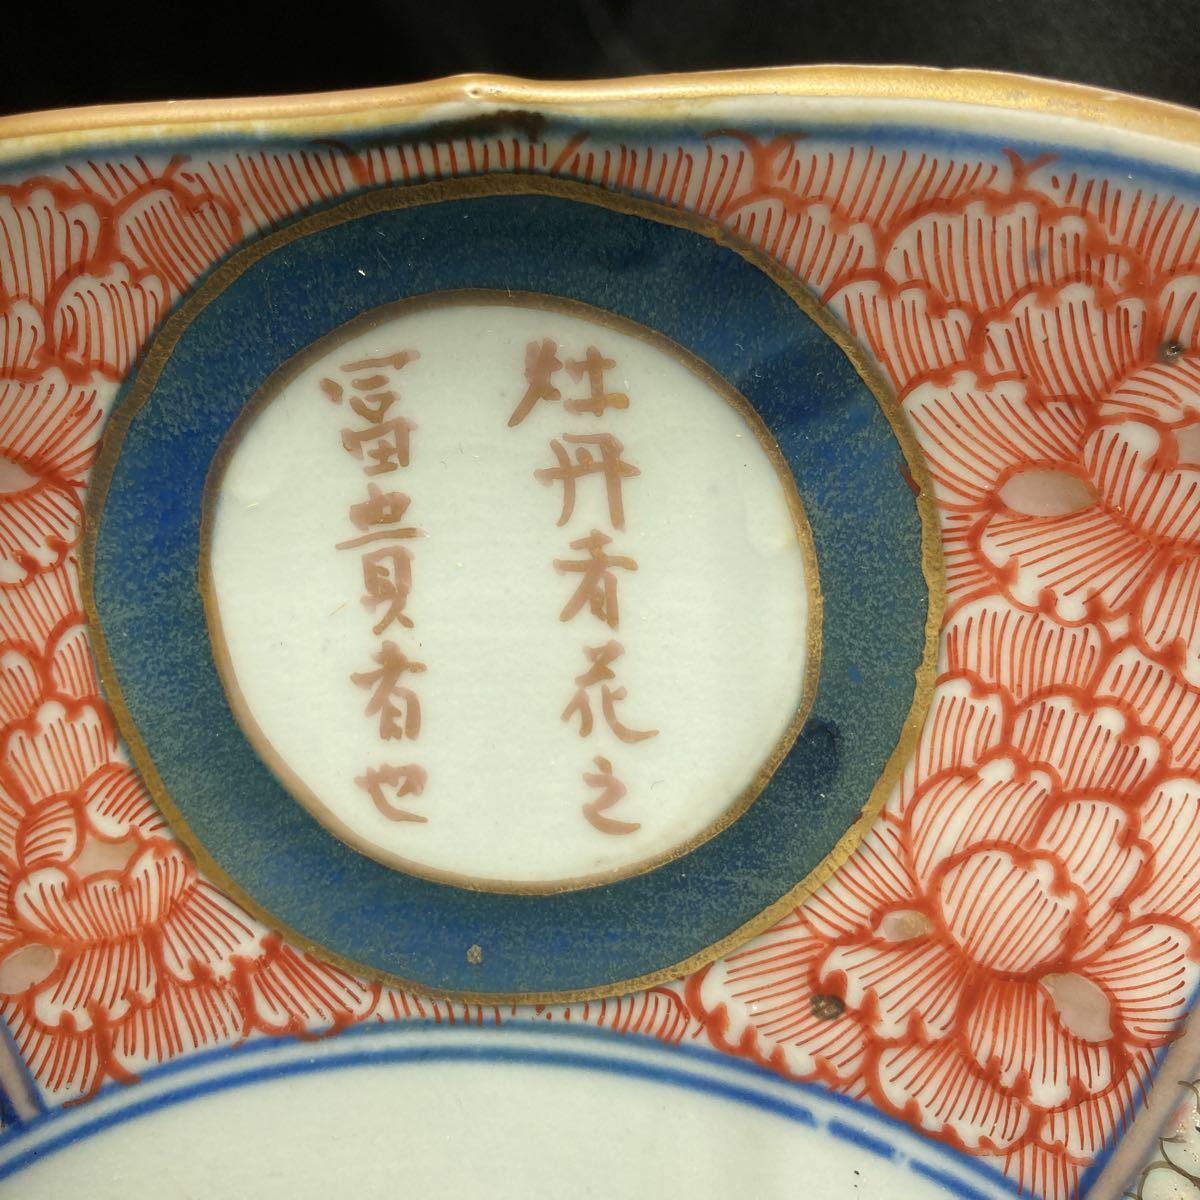 牡丹者花之
冨貴者也